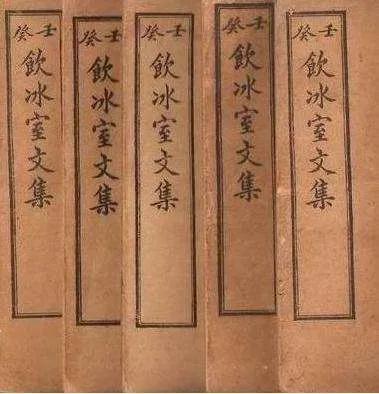 壬癸
飲冰室文集
壬癸
飲冰室文集
壬癸
飲冰室文集
壬癸
飲冰室文集
壬癸
飲冰室文集